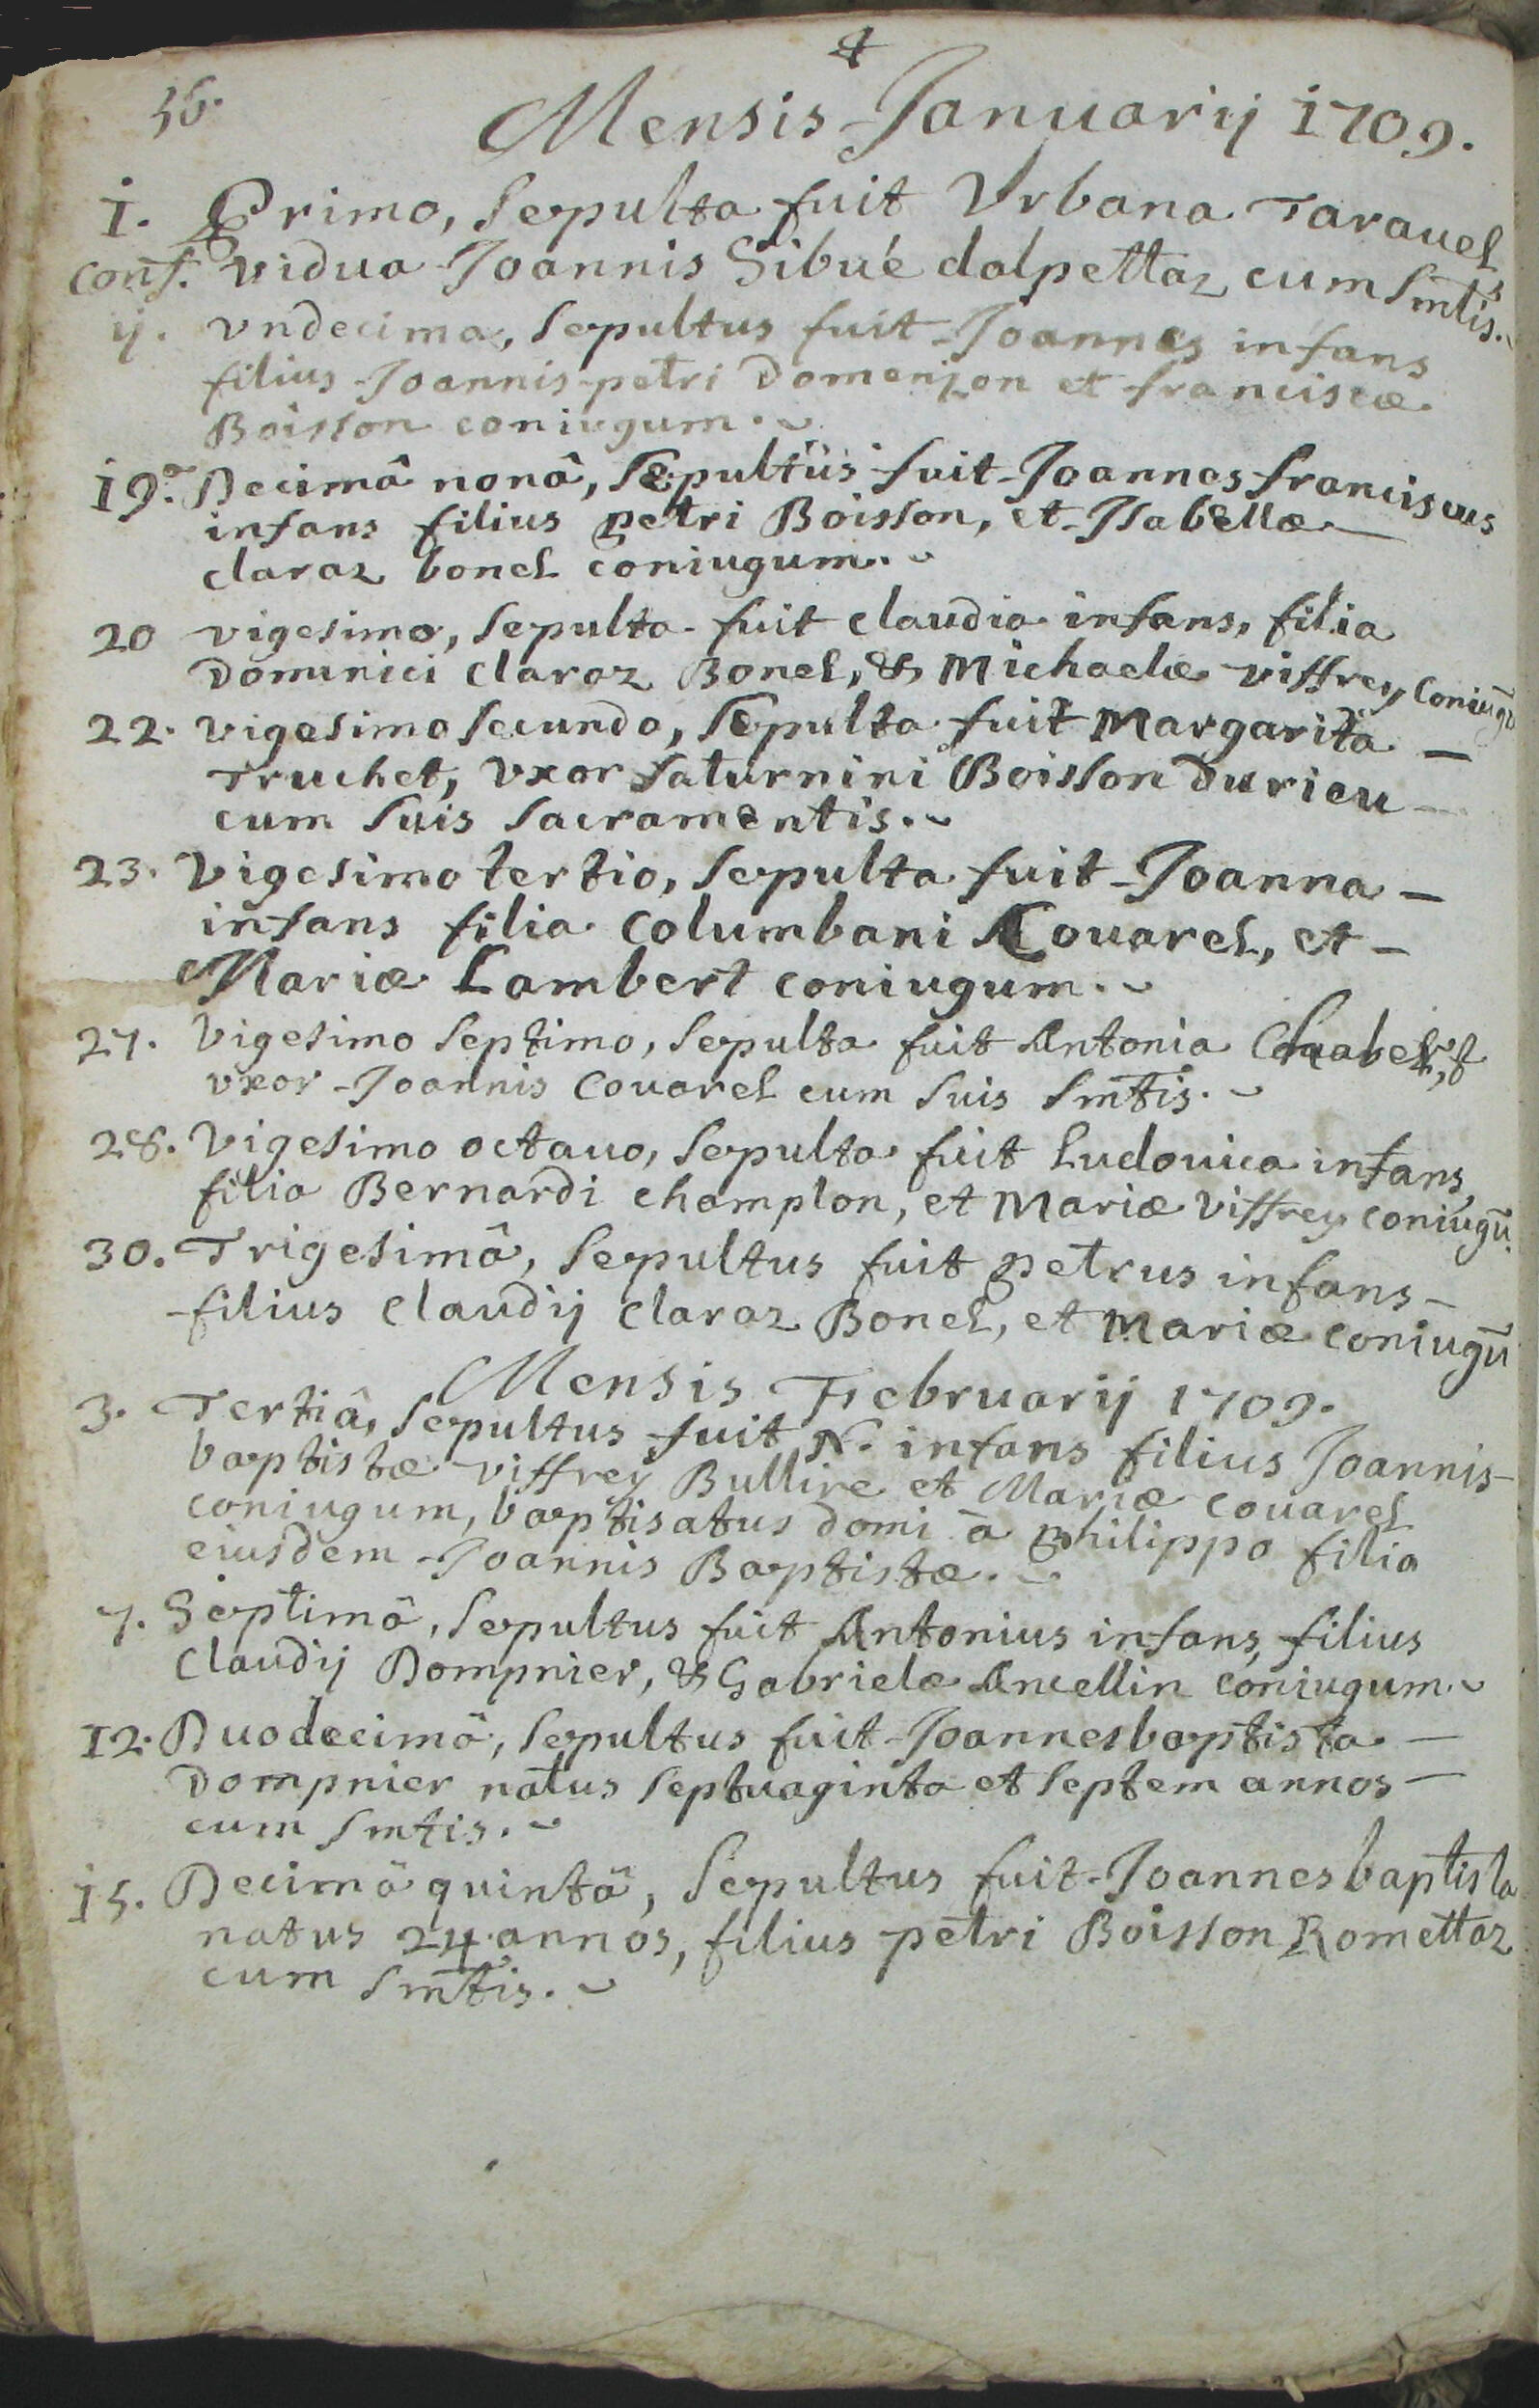 36.
Mensis Januarij 1709.
1. Primo, Sepulta fuit Vrbana Tarauel
Conf. vidua Joannis Sibué dalpettaz cum Smtis.
ij. vndecima, Sepultus fuit Joannes infans
filius Joannis petri Domenjon et franciscæ
Boisson coniugum.
19.a Decimâ nonâ, Sepultus fuit Joannes franciscus
infans filius petri Boisson, et Isabellæ
claraz bonel coniugum.
20 vigesimo, Sepulta fuit claudia infans, filia
Dominici claraz Bonel, & Michaelæ viffrey Coniugū
22. vigesimo secundo, Sepulta fuit Margarita
Truchet, vxor Saturnini Boisson durieu
cum suis Sacramentis.
23. Vigesimo tertio, Sepulta fuit Joanna
infans filia Columbani Couarel, et
Mariæ Lambert coniugum.
27. Vigesimo Septimo, Sepulta fuit Antonia Chabert
vxor Joannis Couarel cum suis Smtis.
28. Vigesimo octauo, Sepulta fuit Ludouica infans,
filia Bernardi champlon, et Mariæ Viffrey coniugū.
30. Trigesimâ, Sepultus fuit petrus infans
filius Claudij Claraz Bonel, et Mariæ coniugū
Mensis Februarij 1709.
3. Tertiâ, Sepultus fuit N. infans filius Joannis
baptistæ viffrey Bullire et Mariæ couarel
coniugum, baptisatus domi à philippo filio
eiusdem Joannis Baptistæ.
7. Septimâ, Sepultus fuit Antonius infans, filius
Claudij Dompnier, & Gabrielæ Ancellin coniugum.
12. Duodecimâ, Sepultus fuit Joannesbaptista
Dompnier natus septuaginta et septem annos
cum Smtis.
15. Decimâ quintâ, Sepultus fuit Joannesbaptista
natus 24. annos, filius petri Boisson Romettaz
cum Smtis.